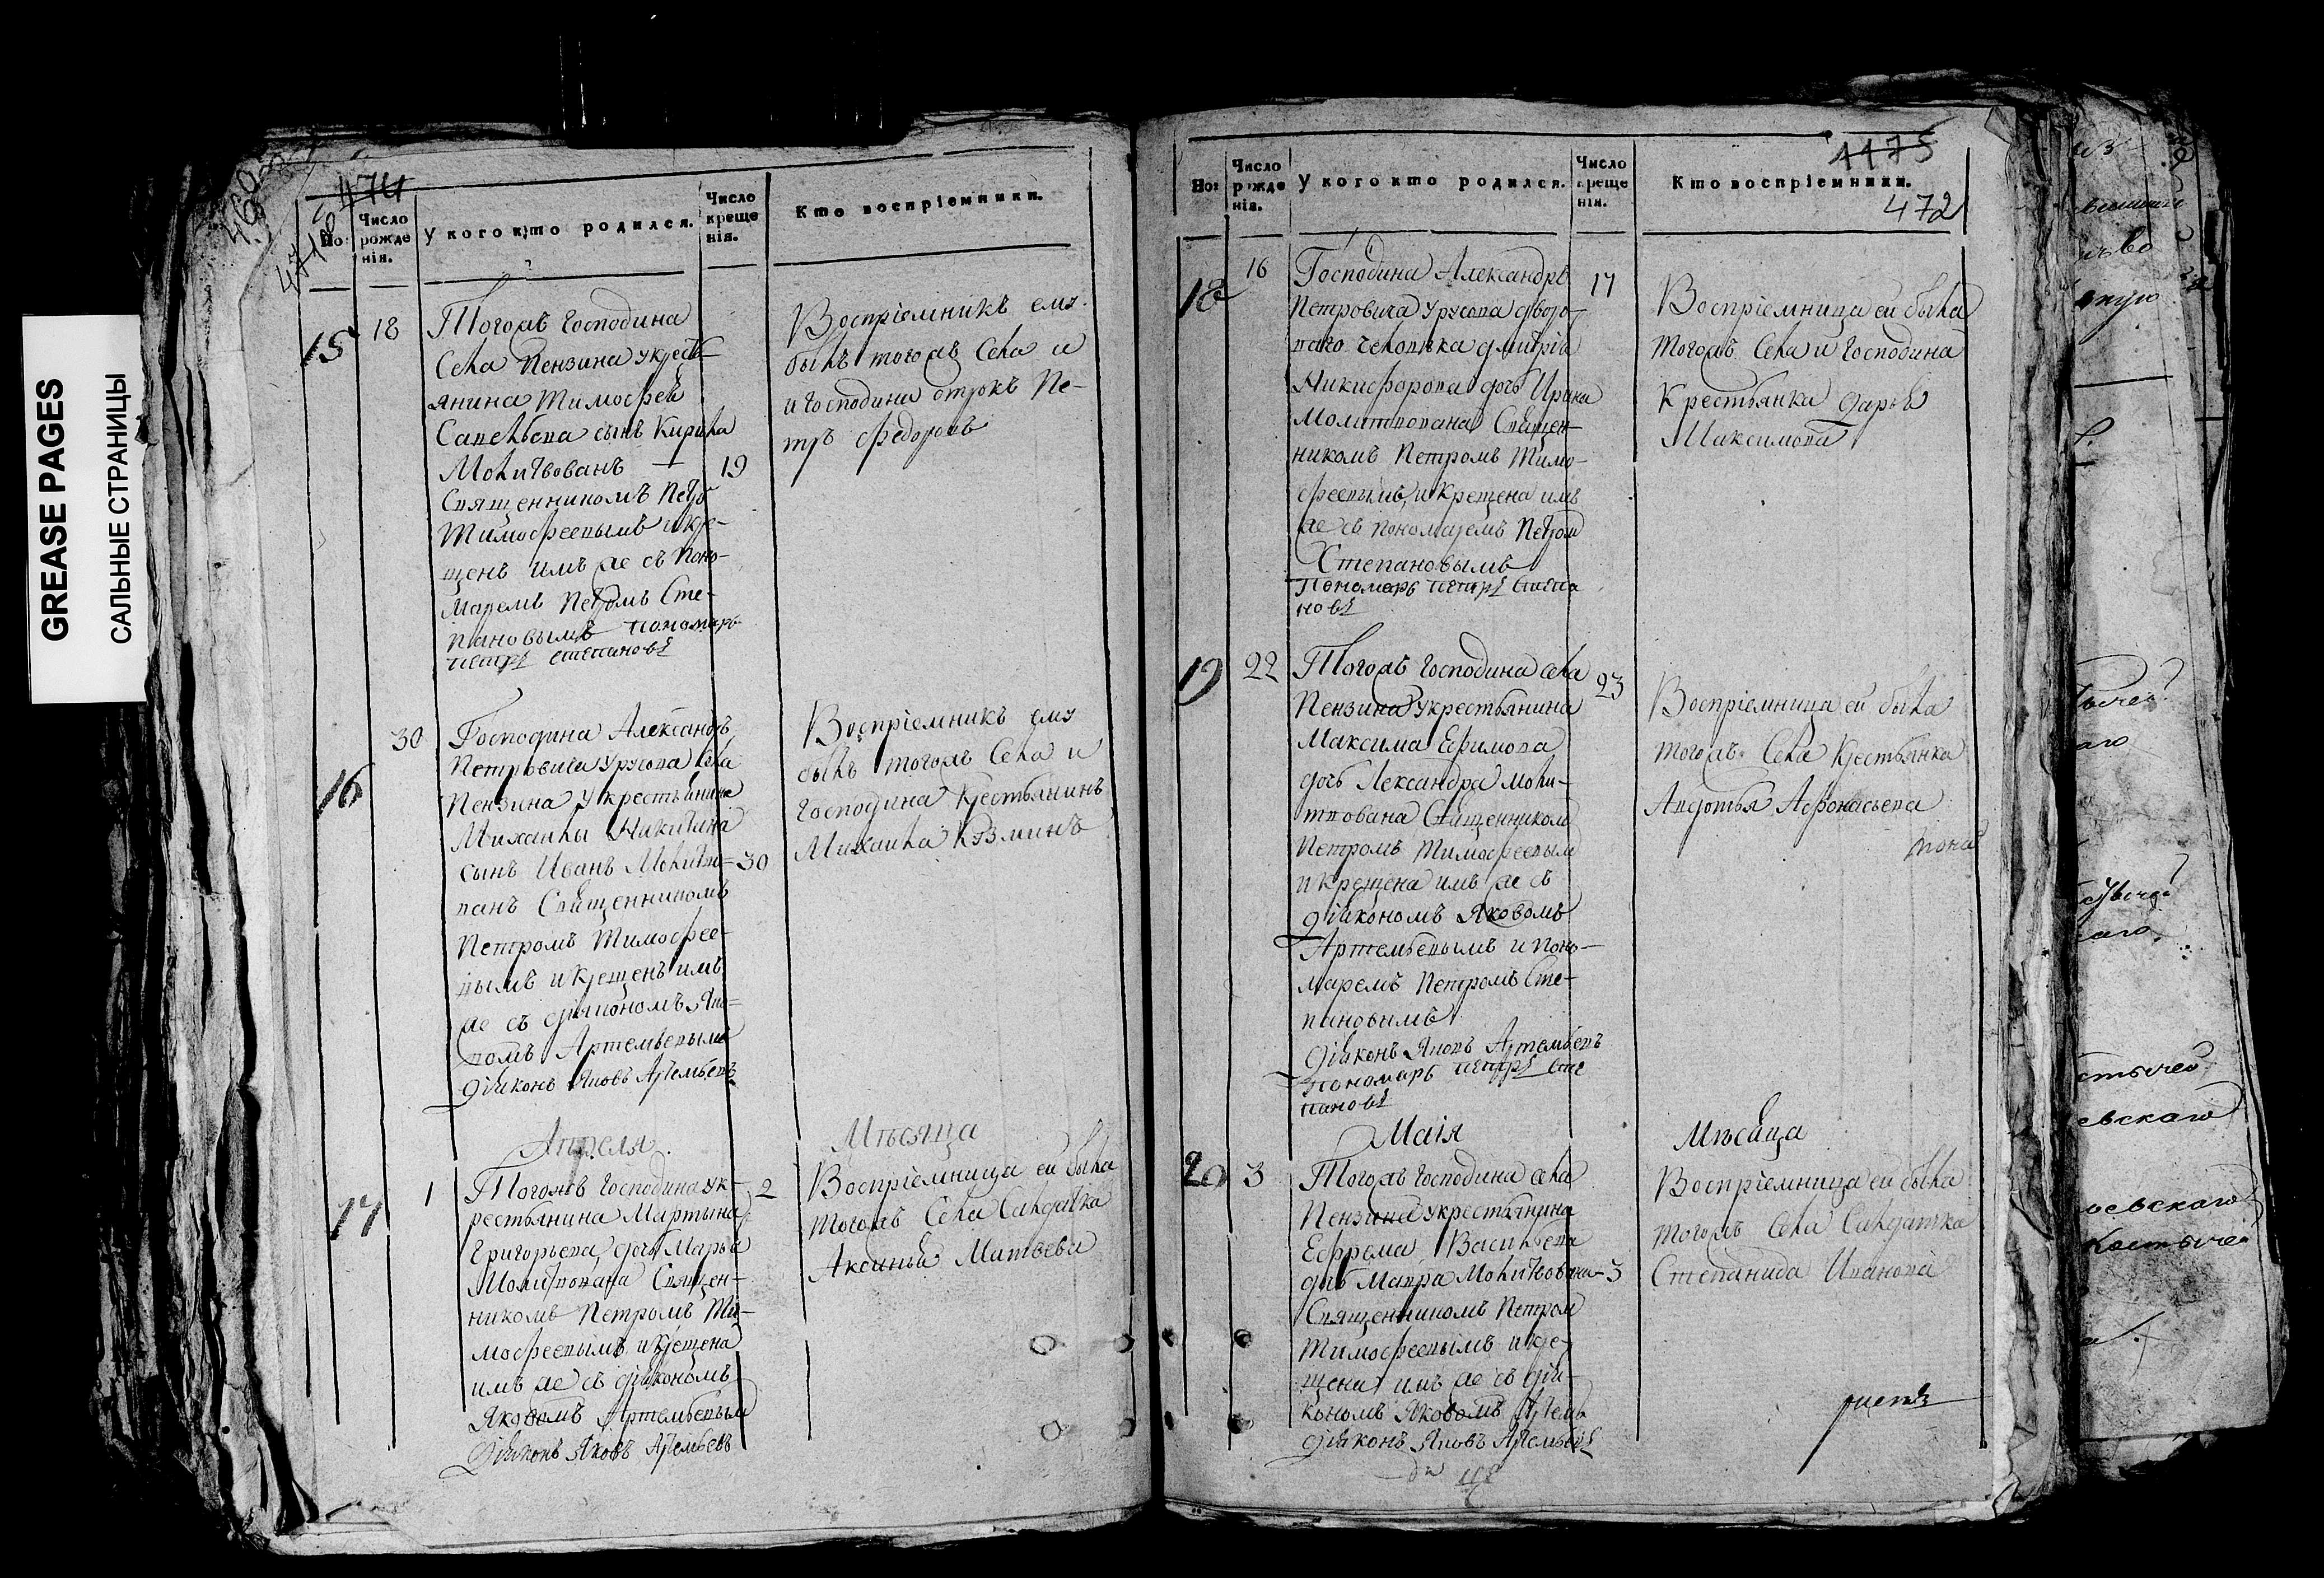 GREASE PAGES
САЛЬНЫЕ СТРАНИЦЫ
474
471
Но:
Число рожденія.
У кого кто родился.
Число крещенія.
Кто воспріемники.
15
18
Тогожъ Господина
Села Пензина у кресть-
янина Тимофея
Савельева сынъ Кирила
Молитвованъ — 19
Священникомъ Петро
Тимофеевымъ и кре-
щенъ имъ же съ поно-
маремъ Петромъ Сте-
пановымъ пономарь
петръ степановъ
Воспріемникъ ему
былъ тогожъ Села и
и Господина отрокъ Пе-
тръ Федоровъ
16
30
Господина Александръ
Петровича Урусова Села
Пензина у крестьянина
Михаилы Никитина
сынъ Иванъ Молитво- 30
ванъ Священникомъ
Петромъ Тимофее-
вымъ и крещенъ имъ
же съ діякономъ Яко-
вомъ Артемьевымъ
діяконъ Яковъ Артемьевъ
Воспріемникъ ему
былъ тогожъ Села и
Господина крестьянинъ
Михаила Козминъ
Апреля
Мѣсяца
17
1
Тогожъ Господина у к- 2
рестьянина Мартына
Григорьева дочь Марья
Молитвована Священ-
никомъ Петромъ Ти-
мофеевымъ и крещена
имъ же съ діякономъ
Яковомъ Артемьевым
Діяконъ Яковъ Артемьевъ
Воспріемница ей была
тогожъ Села Салдатка
Аксинья Матвева
1175
472
Но:
Число рожденія.
У кого кто родился.
Число крещенія.
Кто воспріемники.
18
16
Господина Александръ
17
Петровича Урусова дворо-
ваго человека Дмитрія
Никифорова дочь Ирина
Молитвована Священ-
никомъ Петромъ Тимо-
феевымъ, и крещена имъ
же съ пономаремъ Петром
Степановымъ
Пономарь петръ степа
новъ
Воспріемница ей была
тогожъ Села и Господина
Крестьянка Дарья
Максимова
19
22
Тогожъ Господина села
23
Пензина у крестьянина
Максима Ефимова
дочь Лександра моли-
твована Священником
Петромъ Тимофеевым
и крещена имъ же съ
діякономъ Яковомъ
Артемьевымъ и поно-
маремъ Петромъ Сте-
пановымъ
діяконъ Яковъ Артемьевъ
Пономарь петръ сте
пановъ
Воспріемница ей была
тогожъ Села Крестьянка
Авдотья Афонасьева
Маія
Мѣсяца
20
3
Тогожъ Господина села
Пензина у крестьянина
Ефрема Васильева
дочь Мавра Молитвована 3
Священникомъ Петром
Тимофеевымъ и кре-
щена имъ же съ дія-
кономъ Яковомъ Артемь
діяконъ Яковъ Артемьевъ
Воспріемница ей была
тогожъ Села Салдатка
Степанида Иванова